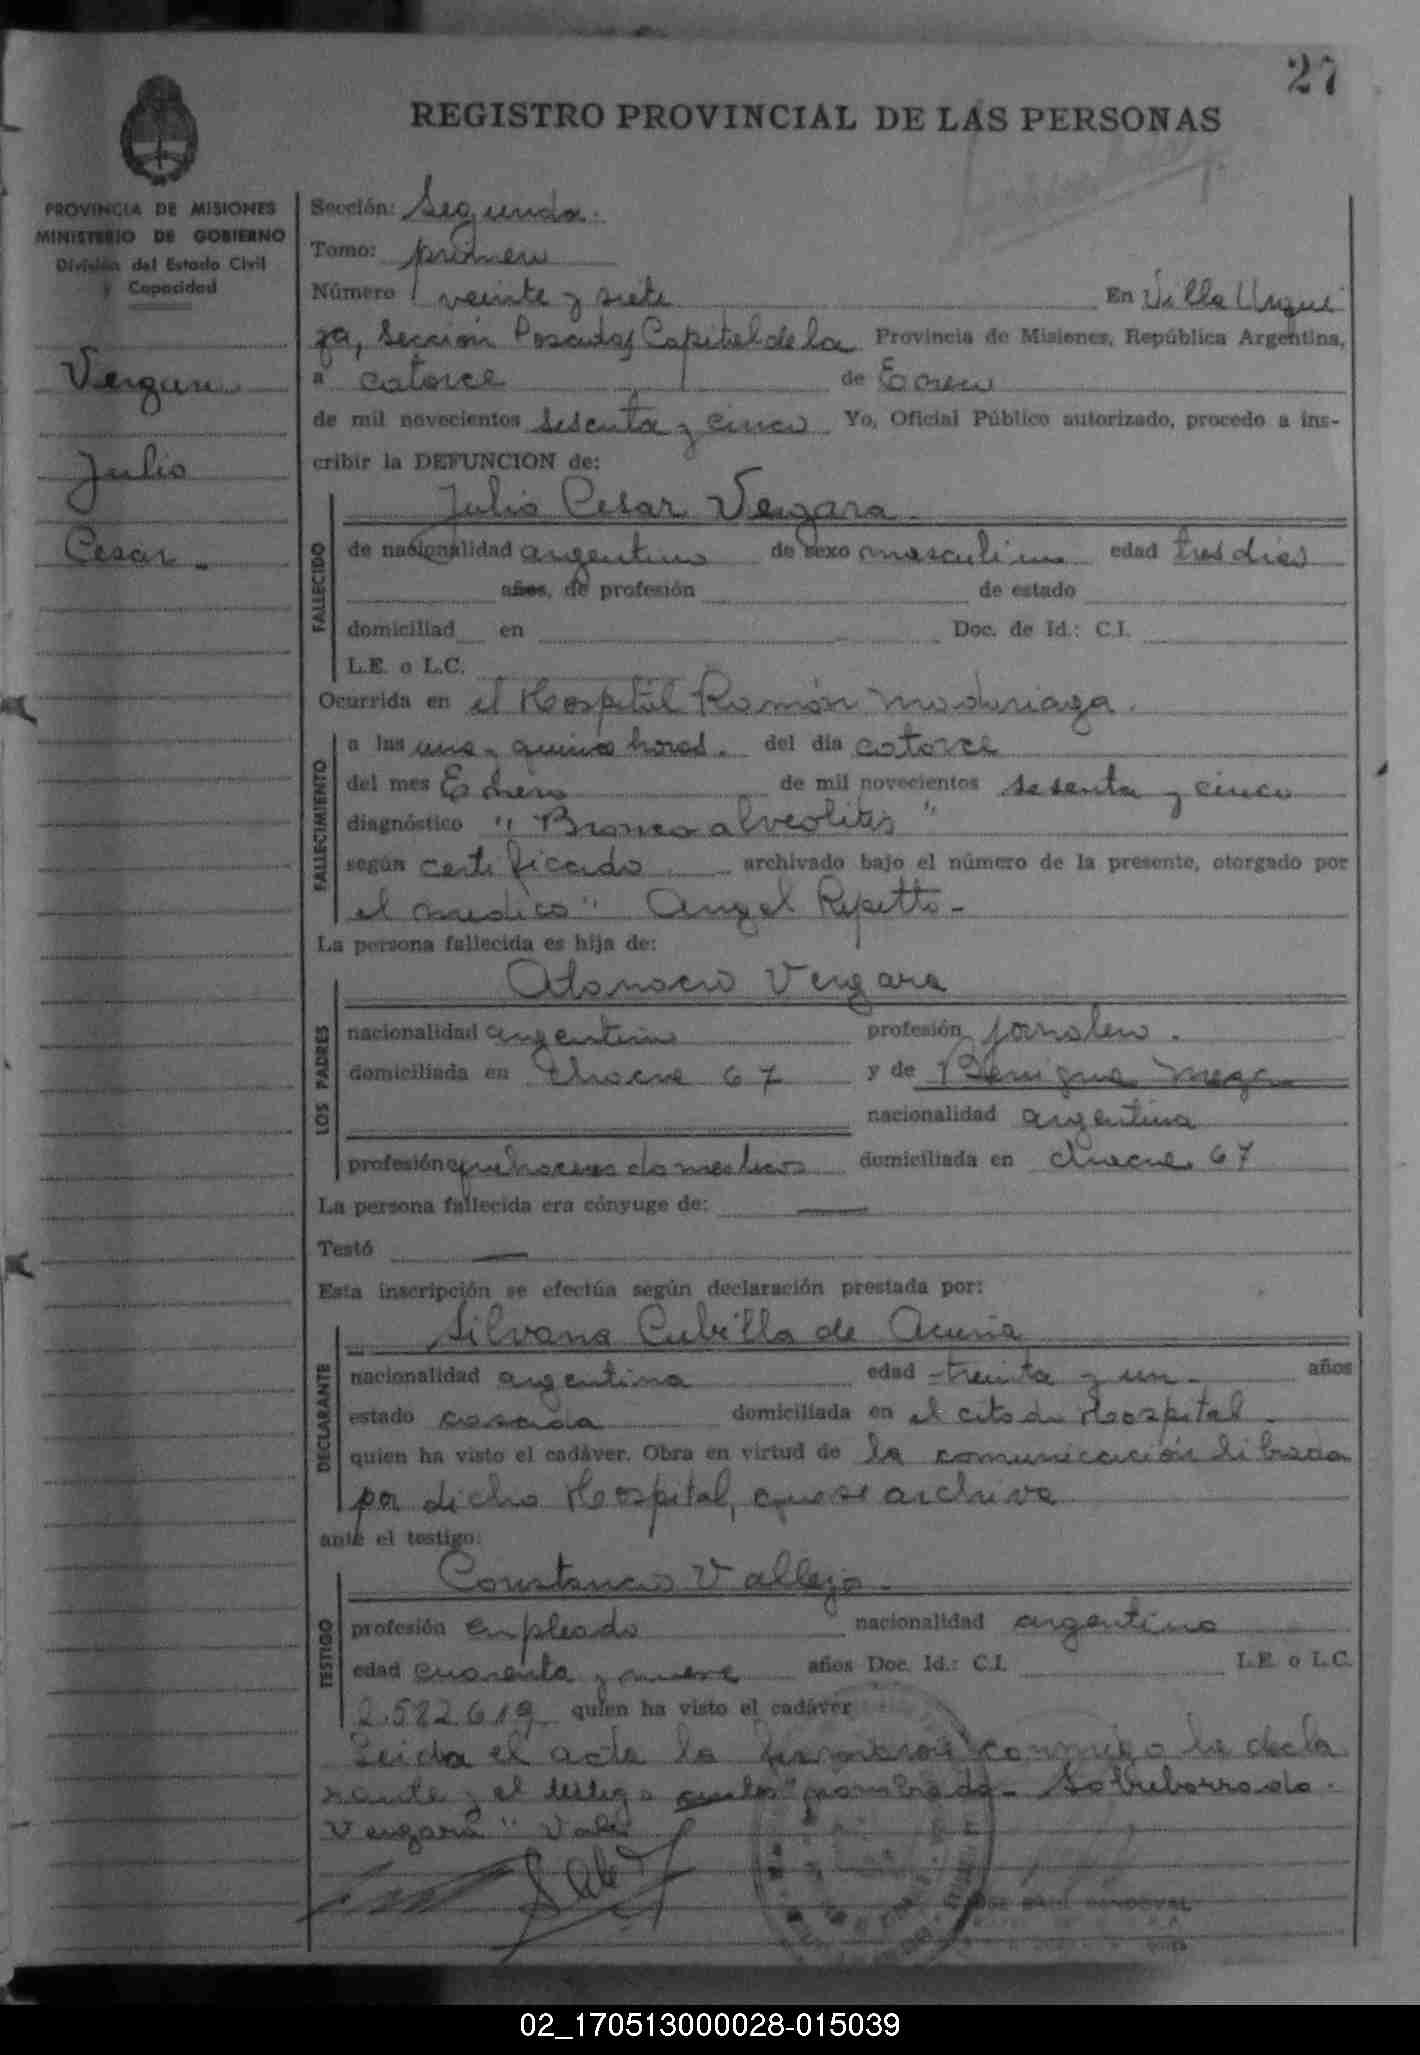 27
REGISTRO PROVINCIAL DE LAS PERSONAS
PROVINCIA DE MISIONES
MINISTERIO DE GOBIERNO
División del Estado Civil
y Capacidad
Vergara
Julio
Cesar.-
Sección: Segunda.
Tomo: primero
Número veinte y siete En Villa Urqui
za, Sección Posadas Capital de la Provincia de Misiones, República Argentina,
a catorce de Enero
de mil novecientos sesenta y cinco Yo, Oficial Público autorizado, procedo a ins-
cribir la DEFUNCION de:
FALLECIDO
Julio Cesar Vergara.
de nacionalidad argentino de sexo masculino edad tres dias
años, de profesión de estado
domiciliad en Doc. de Id.: C.I.
L.E. o L.C.
Ocurrida en el Hospital Ramón Madariaga.
FALLECIMIENTO
a las una y quince horas. del día catorce
del mes Enero de mil novecientos sesenta y cinco
diagnóstico "Bronco alveolitis"
según certificado archivado bajo el número de la presente, otorgado por
el medico" Angel Repetto-
La persona fallecida es hija de:
LOS PADRES
Atanacio Vergara
nacionalidad argentino profesión jornalero.
domiciliada en Chacra 67 y de Benigna Meza
nacionalidad argentina
profesión quehaceres domesticos domiciliada en chacra 67
La persona fallecida era cónyuge de: —
Testó —
Esta inscripción se efectúa según declaración prestada por:
DECLARANTE
Silvana Cubilla de Acuña
nacionalidad argentina edad treinta y un años
estado casada domiciliada en el citado Hospital.
quien ha visto el cadáver. Obra en virtud de la comunicación librada
por dicho Hospital, que se archiva
ante el testigo:
TESTIGO
Constancio Vallejo.
profesión empleado nacionalidad argentino
edad cuarenta y nueve años Doc. Id.: C.I. L.E. o L.C.
2.582.619 quien ha visto el cadáver
Leida el acta la firmaron conmigo la decla
rante y el testigo nombrado- Sobreborrado.
Vergara" Vale
SANDOVAL
02_170513000028-015039